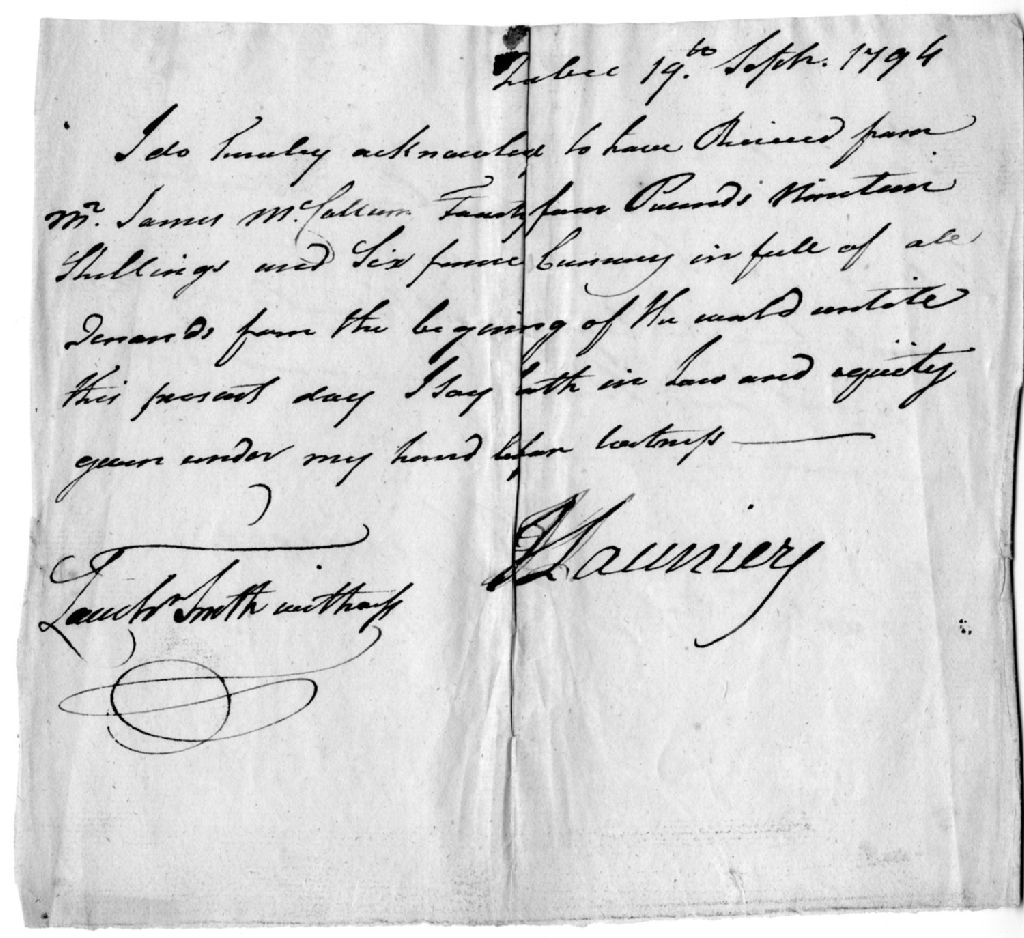 Qubec 19th Septr. 1794
I do hereby acknowledge to have Received from
Mr. James McCallum Fourty four Pounds Nineteen
Shillings and Six pence Currency in full of all
Demands from the begining of the world untile
this present day I say both in Law and equity
given under my hand before witness
Sauniery
Smith witness